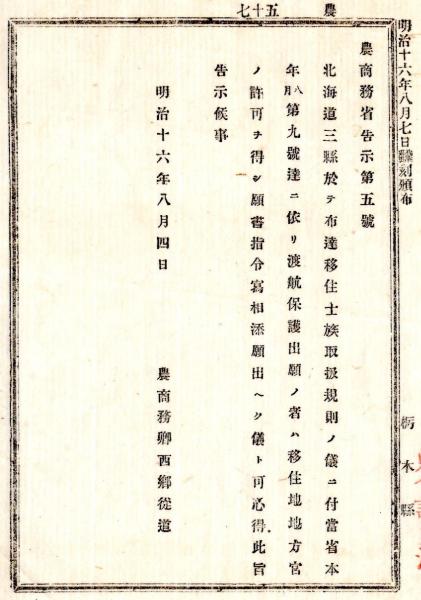 農 五十七
明治十六年八月七日飜刻頒布
栃木縣
農商務省告示第五號
北海道三縣於テ布達移住士族取扱規則ノ儀ニ付當省本
年八月第九號達ニ依リ渡航保護出願ノ者ハ移住地地方官
ノ許可ヲ得シ願書指令寫相添願出ヘク儀ト可心得此旨
告示候事
明治十六年八月四日
農商務卿西鄕從道